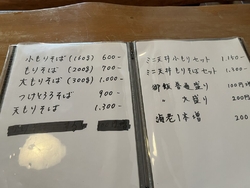 小もりそば (160g) 600-
もりそば (200g) 700-
大もりそば (300g) 1,000-
つけとろろそば 900-
天もりそば 1,300-
ミニ天丼小もりセット 1,100-
ミニ天丼もりそばセット 1,300-
御飯普通盛り 100円
〃 大盛り 200円
海老1本増 200